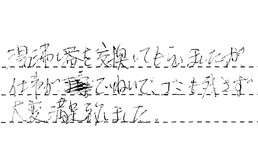 湯沸し器を交換してもらいましたが
仕事がていねいで、ゴミも残さず
大変満足しました。